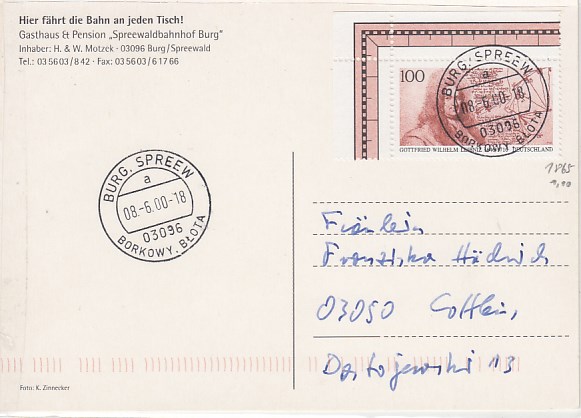 Hier fährt die Bahn an jeden Tisch!
Gasthaus & Pension „Spreewaldbahnhof Burg"
Inhaber: H. & W. Motzek · 03096 Burg/Spreewald
Tel.: 03 56 03/8 42 · Fax: 03 56 03/6 17 66
100
GOTTFRIED WILHELM DEUTSCHLAND
BURG, SPREEW
a
08.-6.00-18
03096
BORKOWY, BŁOTA
BURG, SPREEW
a
08.-6.00-18
03096
BORKOWY, BŁOTA
Fräulein
Franziska
03050
Dostojewski 13
Foto: K. Zinnecker